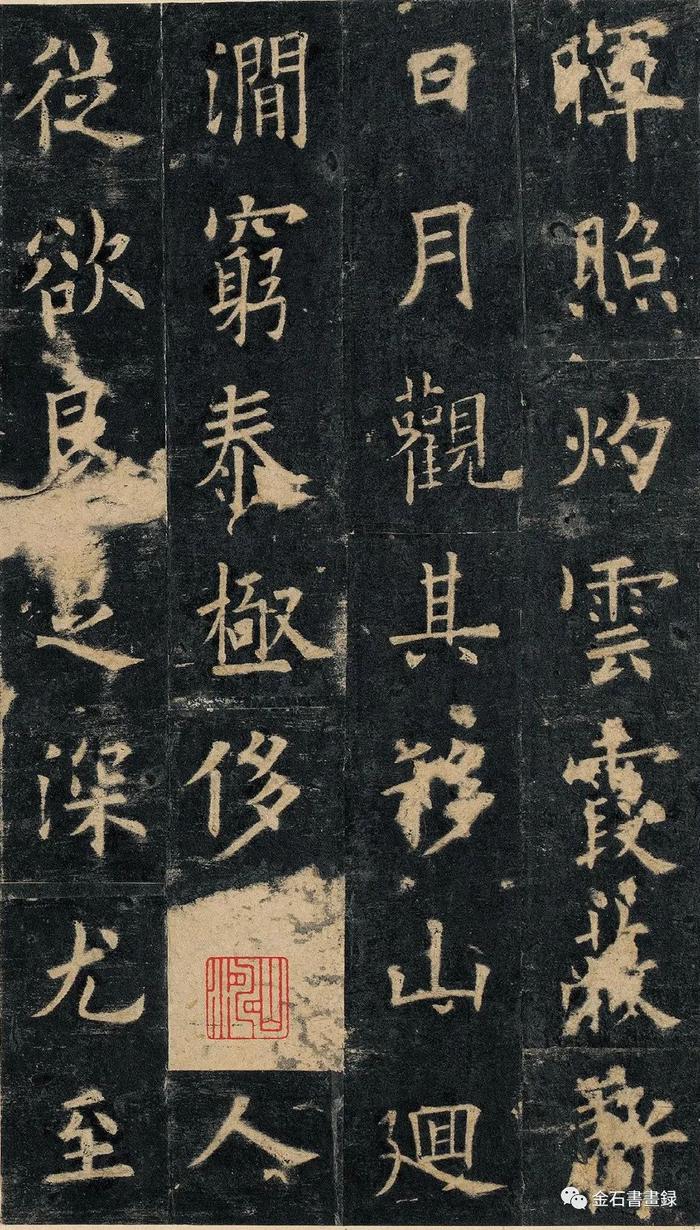 暉照灼雲霞蔽虧
日月觀其移山廻
澗窮泰極侈人
從欲良足深尤至
金石書畫録